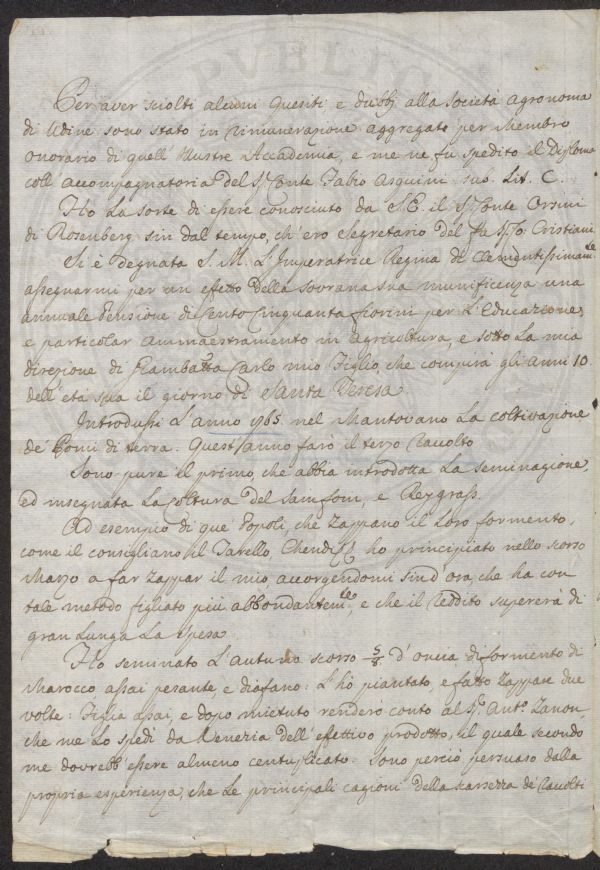 Per aver sciolti alcuni Quesiti e dubbj alla Società Agronoma
di Udine sono stato in rimunerazione aggregato per Membro
onorario di quell' illustre Accademia, e me ne fu spedito il Diploma
coll' accompagnatoria del S.r Conte Fabio Asquini sub. Lit. C.
Ho la sorte di essere conosciuto da S.E. il S.r Conte Orsini
di Rosenberg sin dal tempo, ch' ero Segretario del fu Cristiani
Si è degnata S. M. L' Imperatrice Regina di Clementissimam.te
assegnarmi per un effetto della sovrana sua munificenza una
annuale Pensione di Cento Cinquanta fiorini per l' Educazione,
e particolar ammaestramento in Agricoltura, e sotto la mia
direzione di Giambatta Carlo mio Figlio, che compirà gli anni 10
dell' età sua il giorno di Santa Teresa
Introdussi l' anno 1765 nel Mantovano la coltivazione
de' Pomi di terra. Quest' anno farò il terzo Raccolto
Sono pure il primo, che abbia introdotta la seminagione,
ed insegnata la coltura del Samfoin, e Reygrass.
Ad esempio di que' Popoli, che Zappano il loro formento,
come il consigliano il Tarello ho principiato nello scorso
Marzo a far Zappar il mio accorgendomi sin d' ora, che ha con
tale metodo figliato più abbondantem.te, e che il Reddito superera di
gran lunga la spesa
Ho seminato l' Autuno scorso 5/8 d' oncia di formento di
Marocco assai pesante, e diafano: l' hò piantato, e fatto Zappare due
volte: Figlia assai, e dopo mietuto renderò conto al S.r Ant.o Zanon,
che me lo spedì da Venezia dell' effettivo prodotto, il quale secondo
me dovrebb' essere almeno centuplicato. Sono perciò persuaso dalla
propria esperienza, che le principali cagioni della scarsezza de' Raccolti